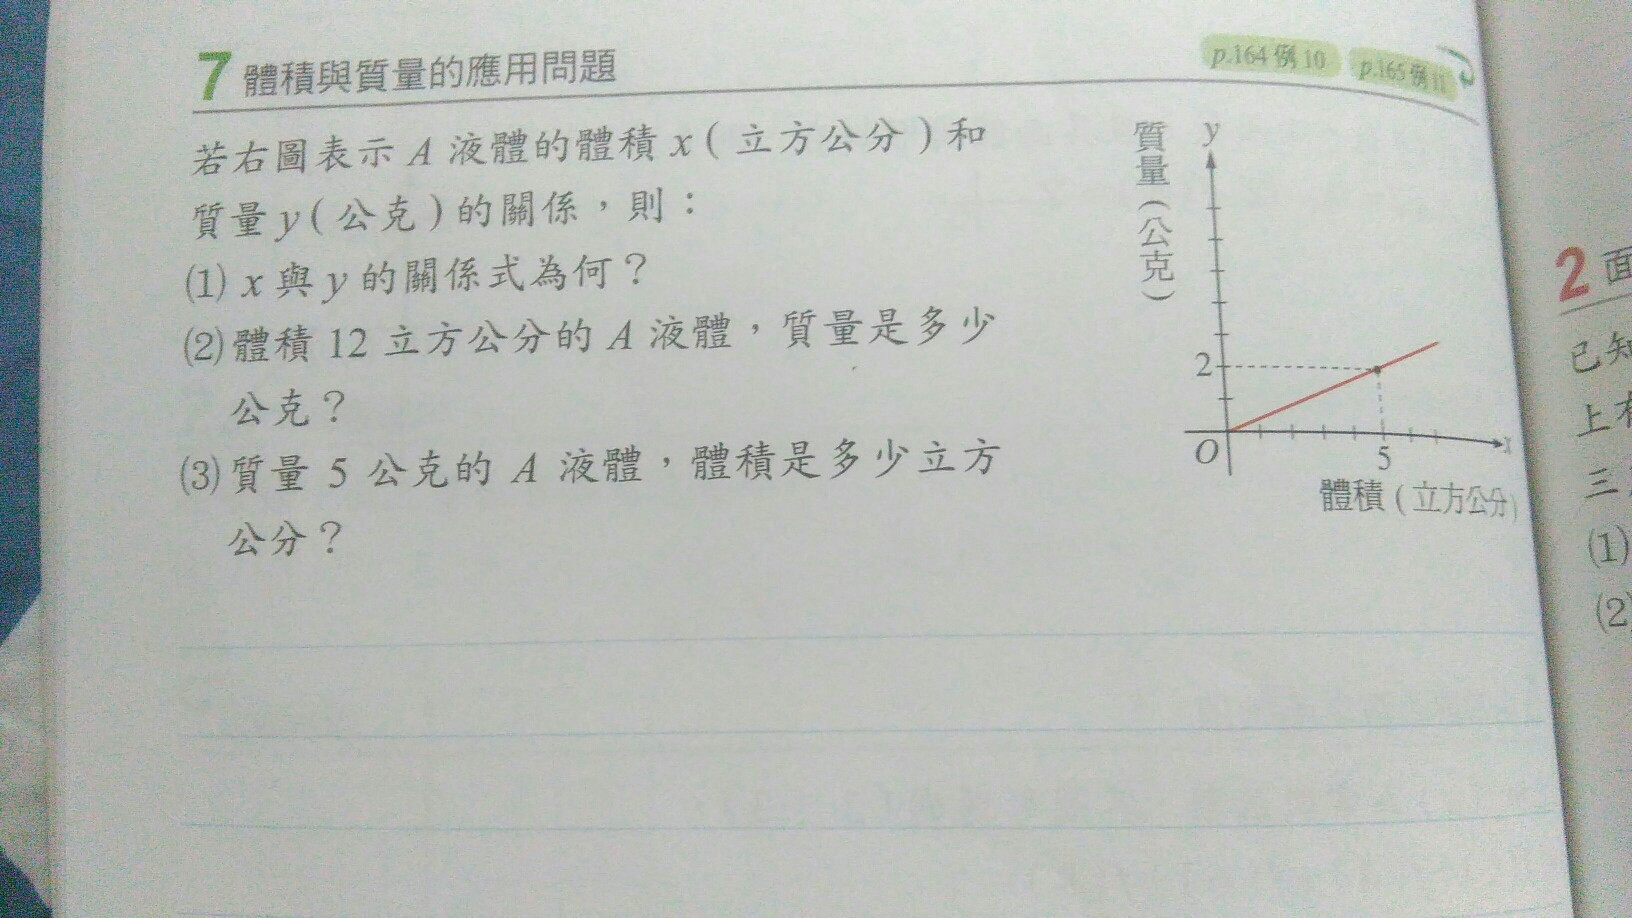 7 體積與質量的應用問題
p.164 例 10 p.165 例 11
若右圖表示 A 液體的體積 x ( 立方公分 ) 和
質量 y ( 公克 ) 的關係，則：
(1) x 與 y 的關係式為何？
(2) 體積 12 立方公分的 A 液體，質量是多少
公克？
(3) 質量 5 公克的 A 液體，體積是多少立方
公分？
質量(公克)
y
2
O
5
x
體積 ( 立方公分 )
2 面
已知
上有
三
(1)
(2)